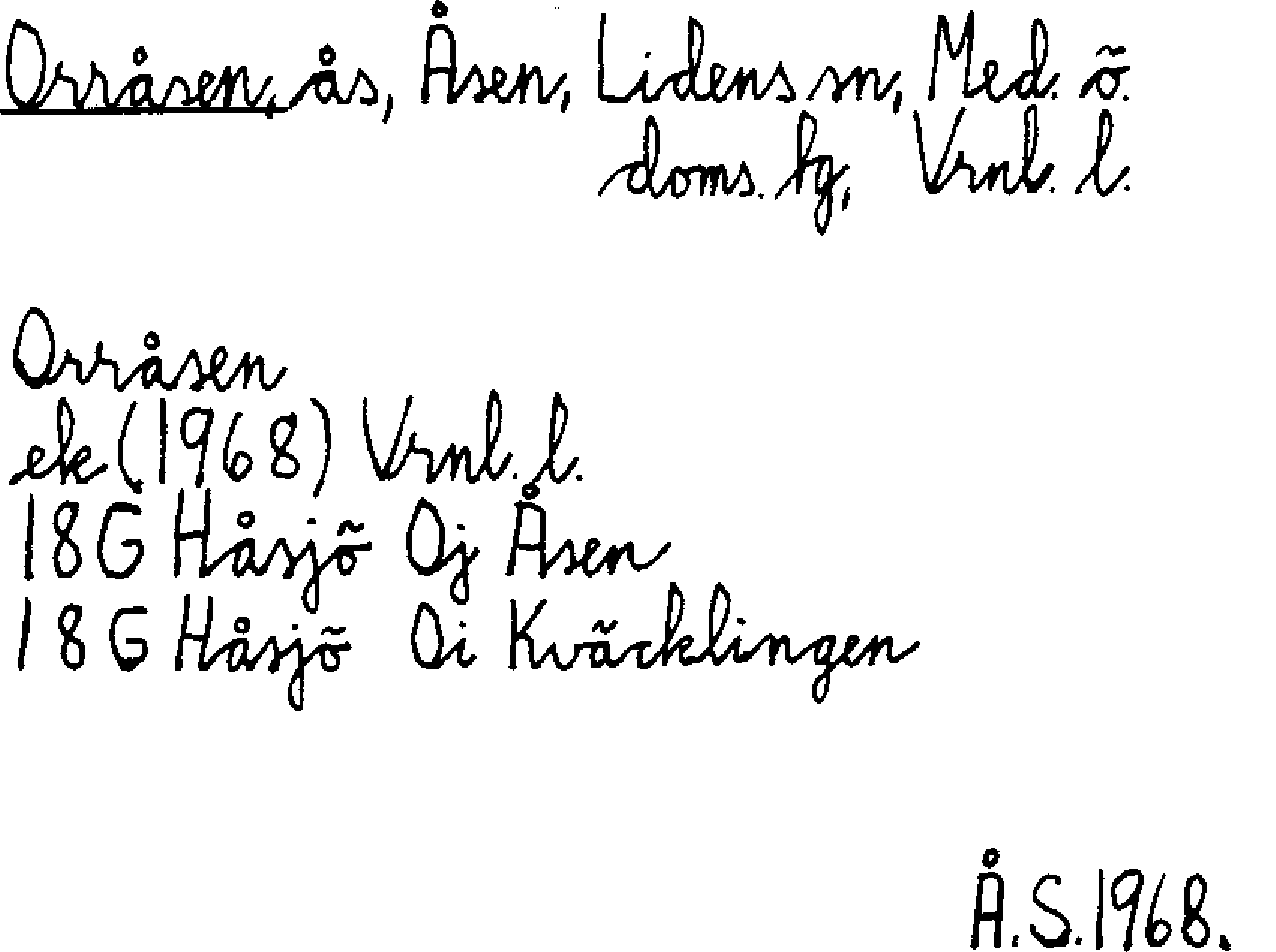 Orråsen, ås, Åsen, Lidens sn, Med. ö.
doms. hg, Vrnl. l.
Orråsen
ek (1968) Vrnl. l.
18G Håsjö 0j Åsen
18G Håsjö 0i Kväcklingen
Å.S.1968.